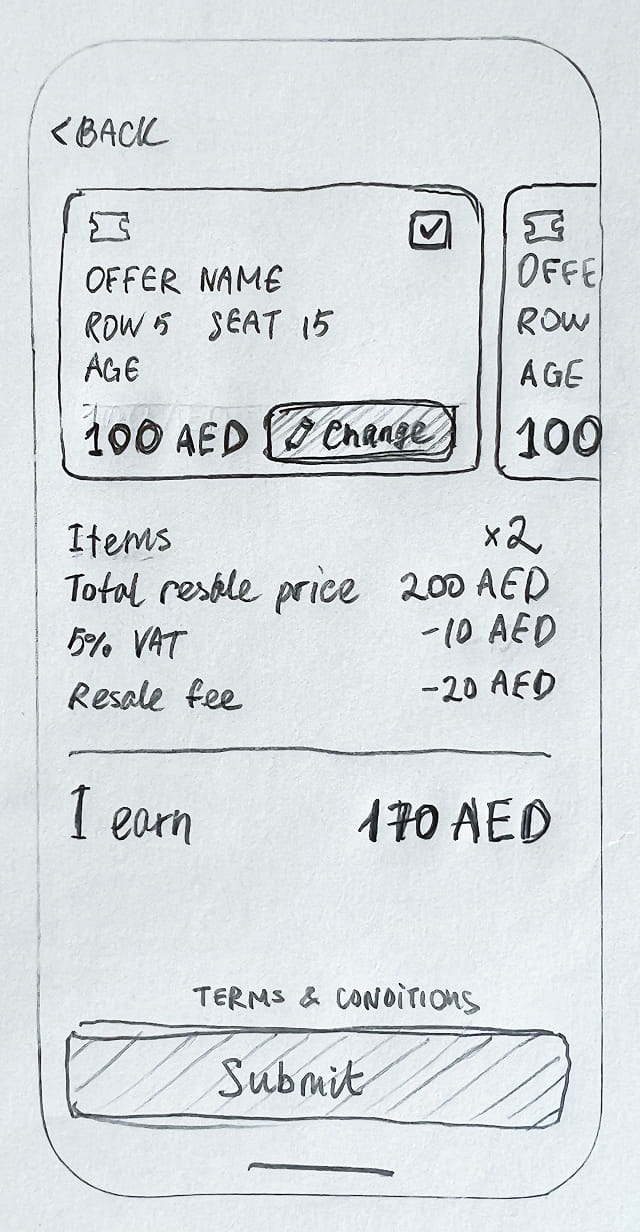 < BACK
OFFER NAME
ROW 5 SEAT 15
AGE
100 AED Change
OFFE
ROW
AGE
100
Items x2
Total resale price 200 AED
5% VAT -10 AED
Resale fee -20 AED
I earn 170 AED
TERMS & CONDITIONS
Submit